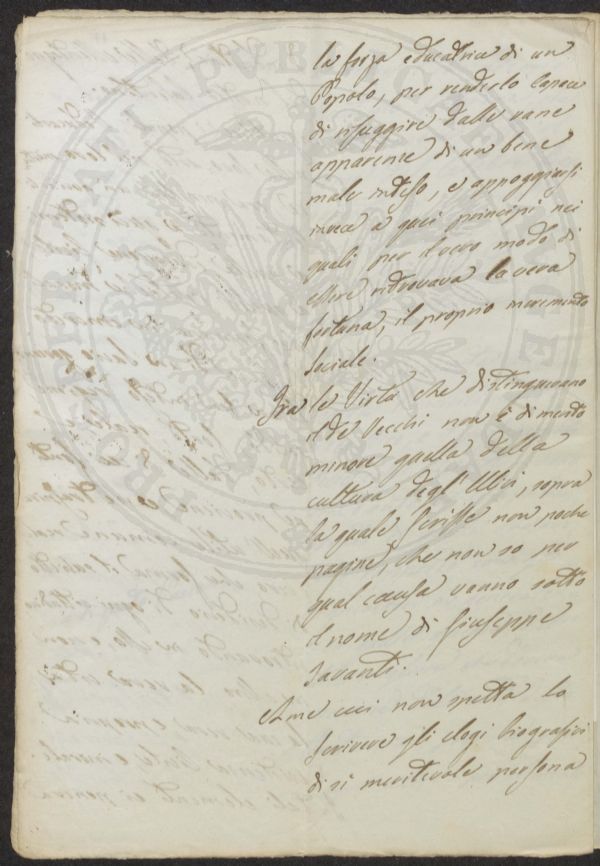 la forza educatrice di un
Popolo, per renderlo capace
di rifuggire dalle vane
apparenze di un bene
male inteso, e appoggiarsi
invece a quei principi nei
quali per il vero modo di
essere ritrovava la vera
fortuna, il proprio incremento
sociale.
Fra le Virtù che distinguevano
il De Vecchi non è di merito
minore quella della
cultura degl'Ulivi, sopra
la quale scrisse non poche
pagine, che non so per
qual causa vanno sotto
il nome di Giuseppe
Tavanti.
A me non spetta lo
scrivere gli elogi biografici
di sì meritevole persona